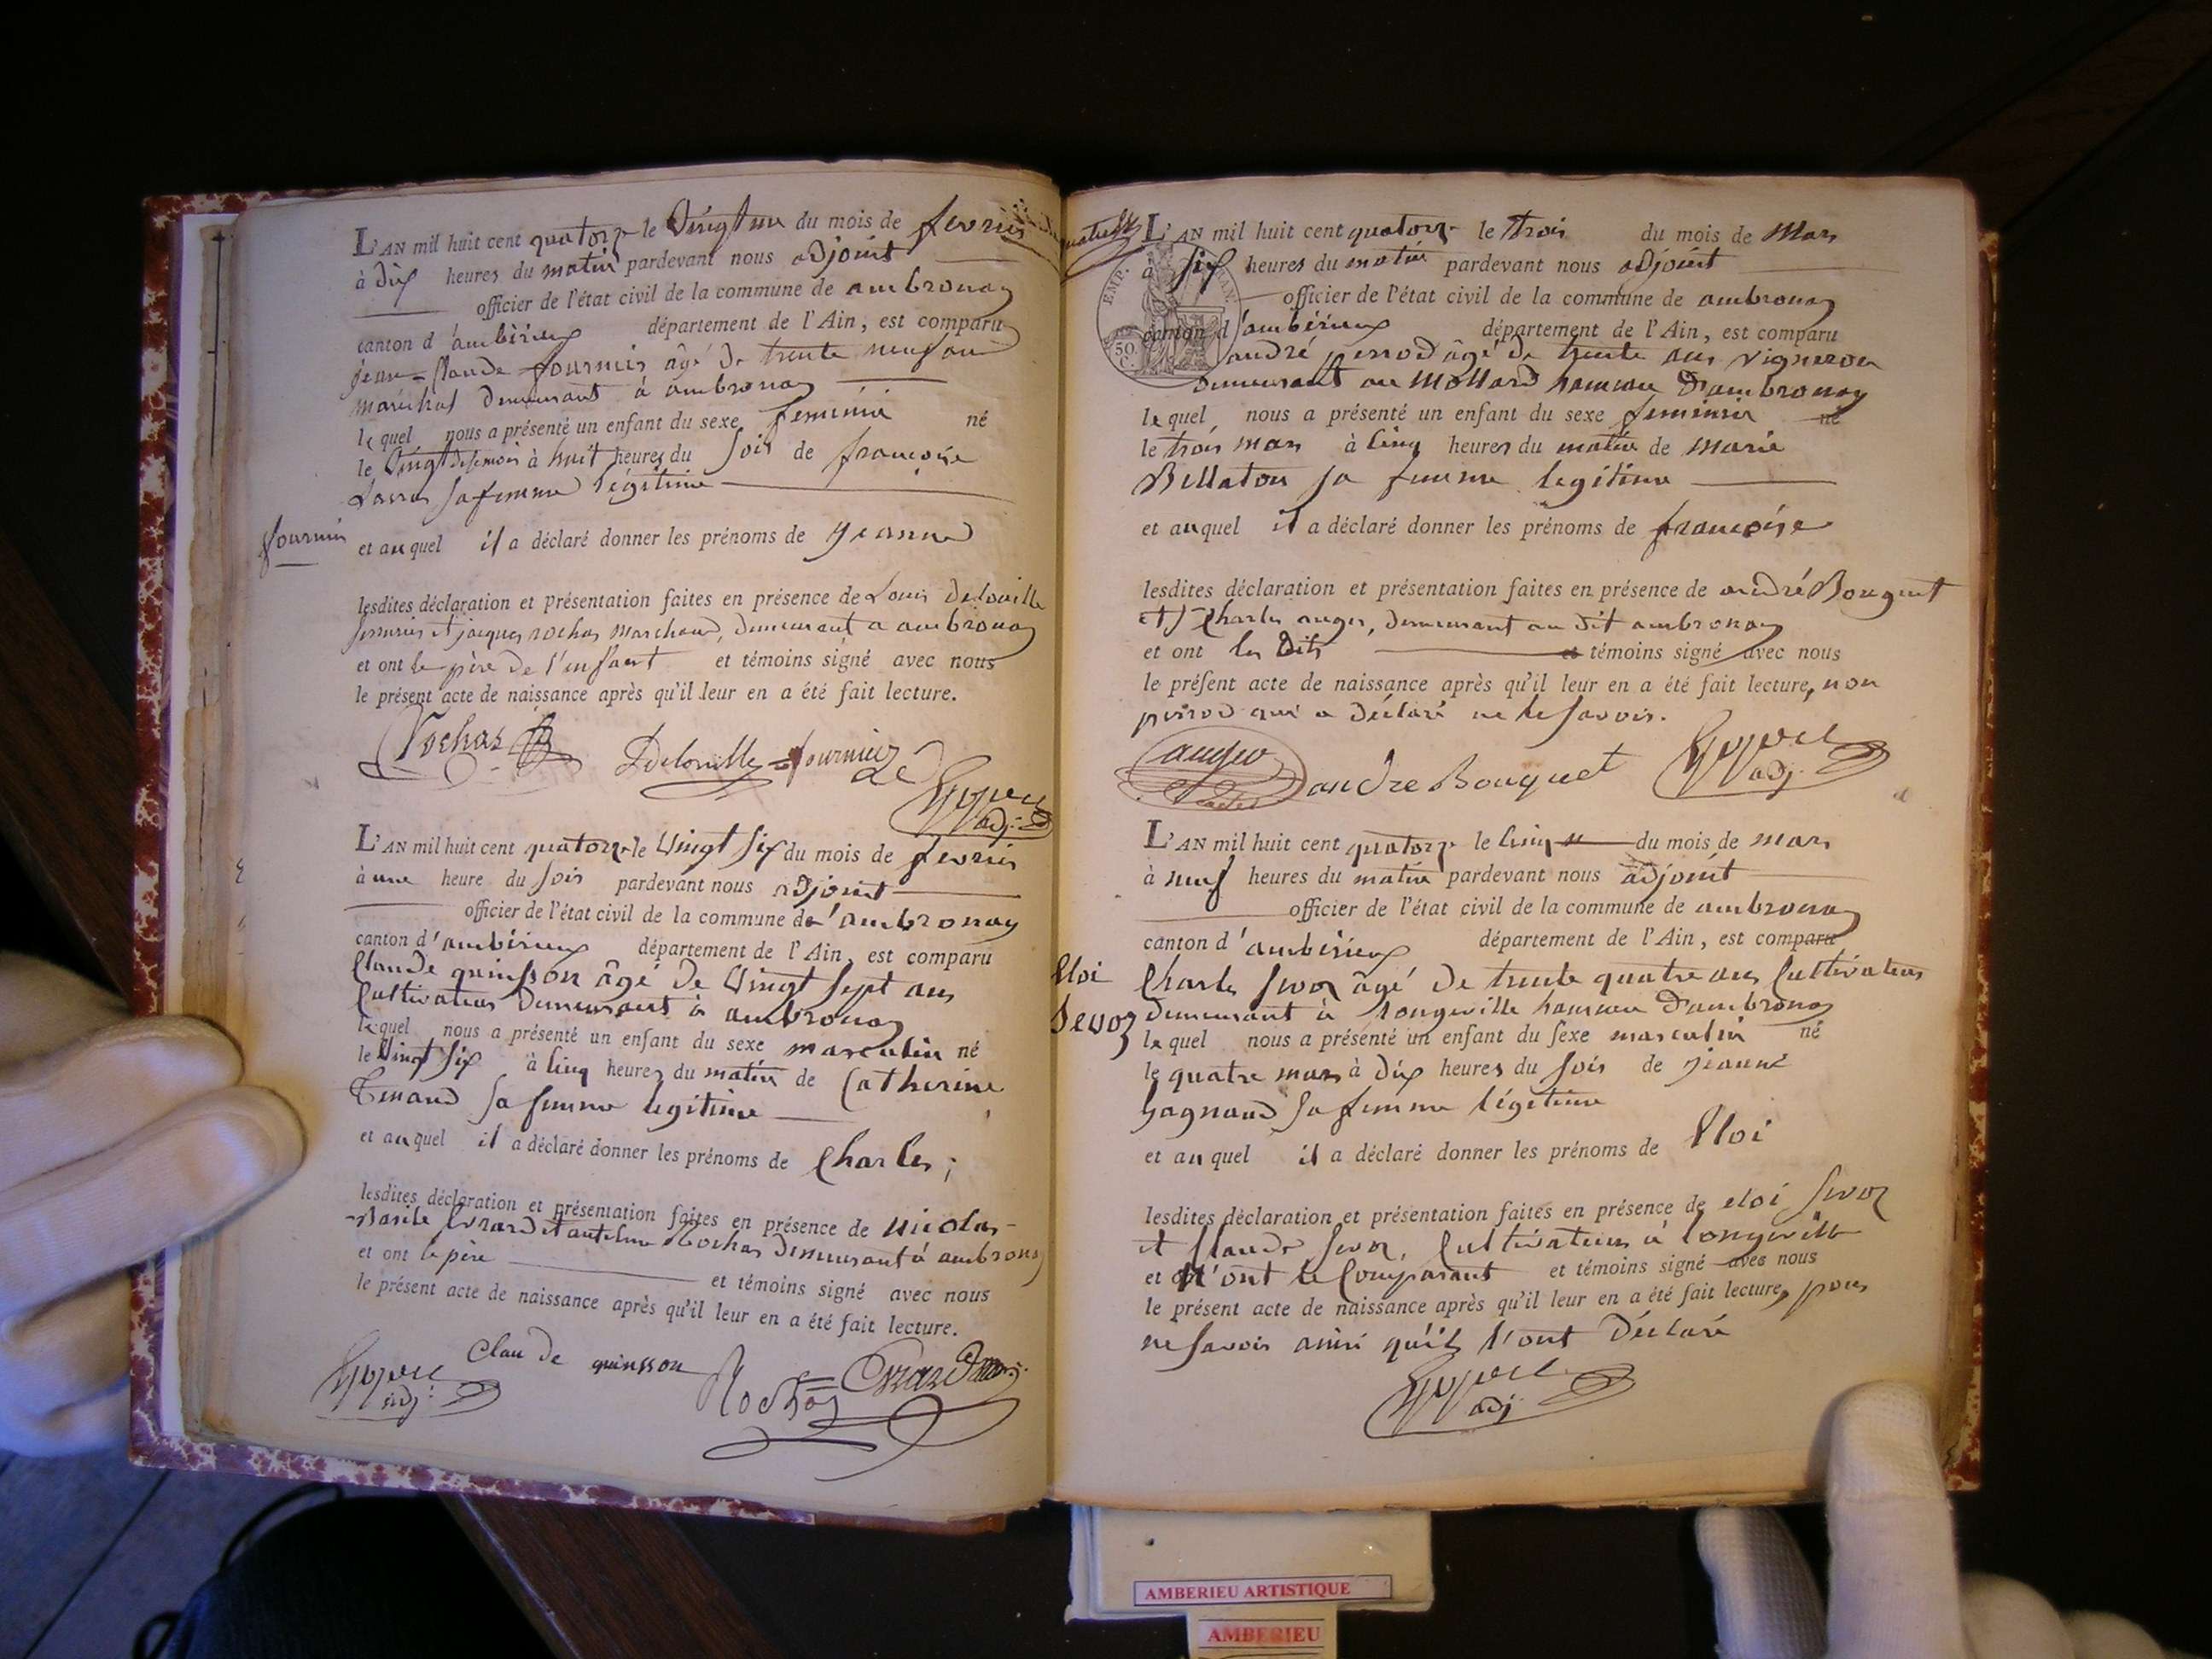 L'AN mil huit cent quatorze le Vingt un du mois de fevrier
à dix heures du matin pardevant nous adjoint
officier de l'état civil de la commune de ambronay
canton d'ambérieux département de l'Ain, est comparu
jean-Claude fournier âgé de trente neuf ans
maréchal demeurant à ambronay
lequel nous a présenté un enfant du sexe feminin né
le Vingt à huit heures du soir de françoise
sa femme légitime
fournier
et auquel il a déclaré donner les prénoms de jeanne
lesdites déclaration et présentation faites en présence de Louis Delouille
serrurier et jacques rochas marchand, demeurant a ambronay
et ont le père de l'enfant et témoins signé avec nous
le présent acte de naissance après qu'il leur en a été fait lecture.
Rochas Delouille fournier
adj:
L'AN mil huit cent quatorze le Vingt six du mois de fevrier
à une heure du soir pardevant nous adjoint
officier de l'état civil de la commune de ambronay
canton d'ambérieux département de l'Ain, est comparu
Claude quinsson âgé de Vingt sept ans
Cultivateur demeurant à ambronay
lequel nous a présenté un enfant du sexe masculin né
le Vingt six à cinq heures du matin de Catherine
Tenand sa femme legitime
et auquel il a déclaré donner les prénoms de Charles;
lesdites déclaration et présentation faites en présence de Nicolas-
Basile Evrard et antelme Rochas demeurant à ambronay
et ont le père et témoins signé avec nous
le présent acte de naissance après qu'il leur en a été fait lecture.
adj: Clau de quinsson Rochas Evrard
L'AN mil huit cent quatorze le trois du mois de Mars
à six heures du matin pardevant nous adjoint
officier de l'état civil de la commune de ambronay
canton d'ambérieux département de l'Ain, est comparu
EMP. FRAN.
50. C.
andré perrod âgé de trente ans vigneron
demeurant au Mollard hameau d'ambronay
lequel nous a présenté un enfant du sexe feminin né
le trois mars à cinq heures du matin de Marie
Bellaton sa femme legitime
et auquel il a déclaré donner les prénoms de françoise
lesdites déclaration et présentation faites en présence de andré Bouquet
et Charles auger, demeurant au dit ambronay
et ont les dits et témoins signé avec nous
le présent acte de naissance après qu'il leur en a été fait lecture, non
perrod qui a déclaré ne le savoir.
auger andre Bouquet
adj:
L'AN mil huit cent quatorze le cinq du mois de mars
à neuf heures du matin pardevant nous adjoint
officier de l'état civil de la commune de ambronay
canton d'ambérieux département de l'Ain, est comparu
Eloi
Sevoz
Charles Sevoz âgé de trente quatre ans Cultivateur
demeurant à longeville hameau d'ambronay
lequel nous a présenté un enfant du sexe masculin né
le quatre mars à dix heures du soir de jeanne
gagnaud sa femme légitime
et auquel il a déclaré donner les prénoms de Eloi
lesdites déclaration et présentation faites en présence de eloi Sevoz
et Claude Sevoz, Cultivateurs à longeville
et n'ont le Comparant et témoins signé avec nous
le présent acte de naissance après qu'il leur en a été fait lecture, pour
ne savoir ainsi qu'ils l'ont déclaré
adj:
AMBERIEU ARTISTIQUE
AMBERIEU